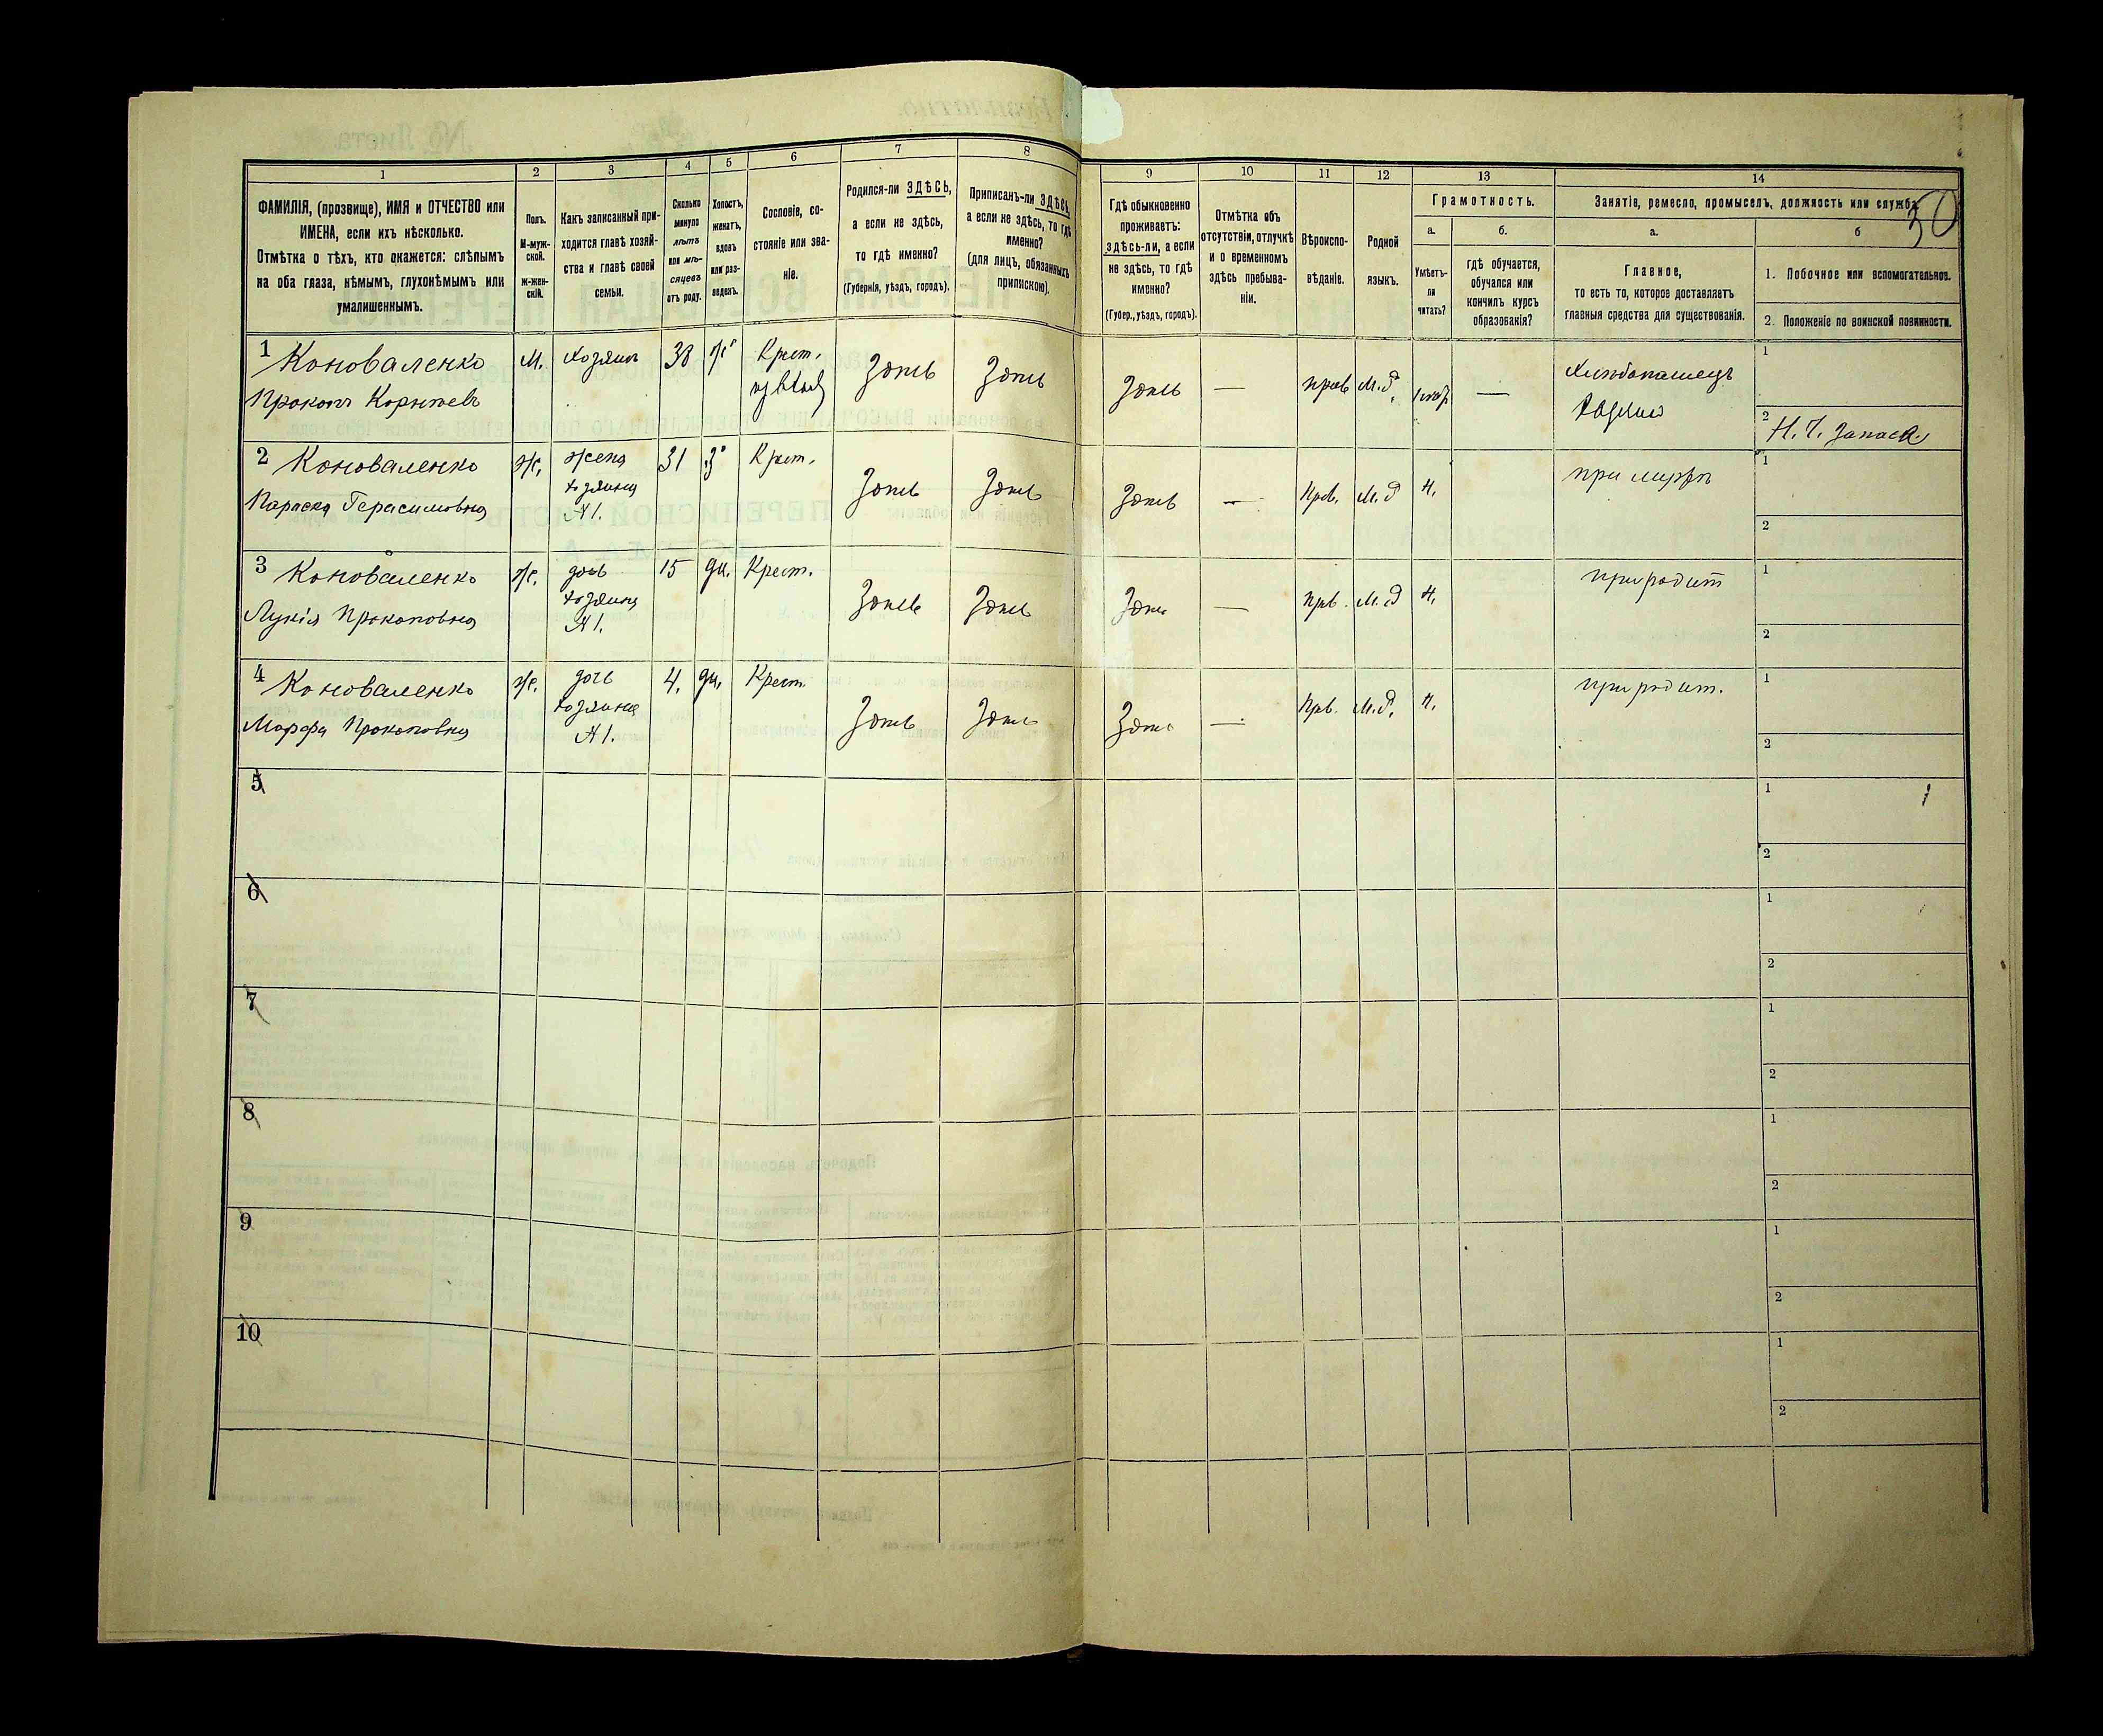 50
1
2
3
4
5
6
7
8
ФАМИЛІЯ, (прозвище), ИМЯ и ОТЧЕСТВО или
ИМЕНА, если ихъ нѣсколько.
Отмѣтка о тѣхъ, кто окажется: слѣпымъ
на оба глаза, нѣмымъ, глухонѣмымъ или
умалишеннымъ.
Полъ.
М-муж-
ской.
ж-жен-
скій.
Какъ записанный при-
ходится главѣ хозяй-
ства и главѣ своей
семьи.
Сколько
минуло
лѣтъ
или мѣ-
сяцевъ
отъ роду.
Холостъ,
женатъ,
вдовъ
или раз-
веденъ.
Сословіе, со-
стояніе или зва-
ніе.
Родился-ли ЗДѢСЬ,
а если не здѣсь,
то гдѣ именно?
(Губернія, уѣздъ, городъ).
Приписанъ-ли ЗДѢСЬ,
а если не здѣсь, то гдѣ
именно?
(для лицъ, обязанныхъ
припискою).
9
10
11
12
13
14
Гдѣ обыкновенно
проживаетъ:
здѣсь-ли, а если
не здѣсь, то гдѣ
именно?
(Губер., уѣздъ, городъ).
Отмѣтка объ
отсутствіи, отлучкѣ
и о временномъ
здѣсь пребыва-
ніи.
Вѣроиспо-
вѣданіе.
Родной
языкъ.
Грамотность.
а.
Умѣетъ-
ли
читать?
б.
гдѣ обучается,
обучался или
кончилъ курсъ
образованія?
Занятіе, ремесло, промыселъ, должность или служба.
а.
Главное,
то есть то, которое доставляетъ
главныя средства для существованія.
б
1. Побочное или вспомогательное.
2. Положеніе по воинской повинности.
1 Коноваленко М. хозяинъ 38 ж Крест.
Прокопъ Корнѣевъ Здѣсь Здѣсь
Здѣсь — прав М. Р. — Хлѣбопашецъ
1
2 Н. Ч. запаса
2 Коноваленко ж. жена 31 З Крест.
Параска Герасимовна хозяина Здѣсь Здѣсь
№1.
Здѣсь — Прв. М. Р Н. при мужѣ
1
2
3 Коноваленко ж. дочь 15 дѣ. Крест.
Лукія Прокоповна хозяина Здѣсь Здѣсь
№1.
Здѣсь — прв. М. Р Н. при родит
1
2
4 Коноваленко ж. дочь 4. дѣ. Крест.
Марфа Прокоповна хозяина Здѣсь Здѣсь
№1.
Здѣсь — Прв. М. Р. Н. при родит.
1
2
5
1
2
6
1
2
7
1
2
8
1
2
9
1
2
10
1
2